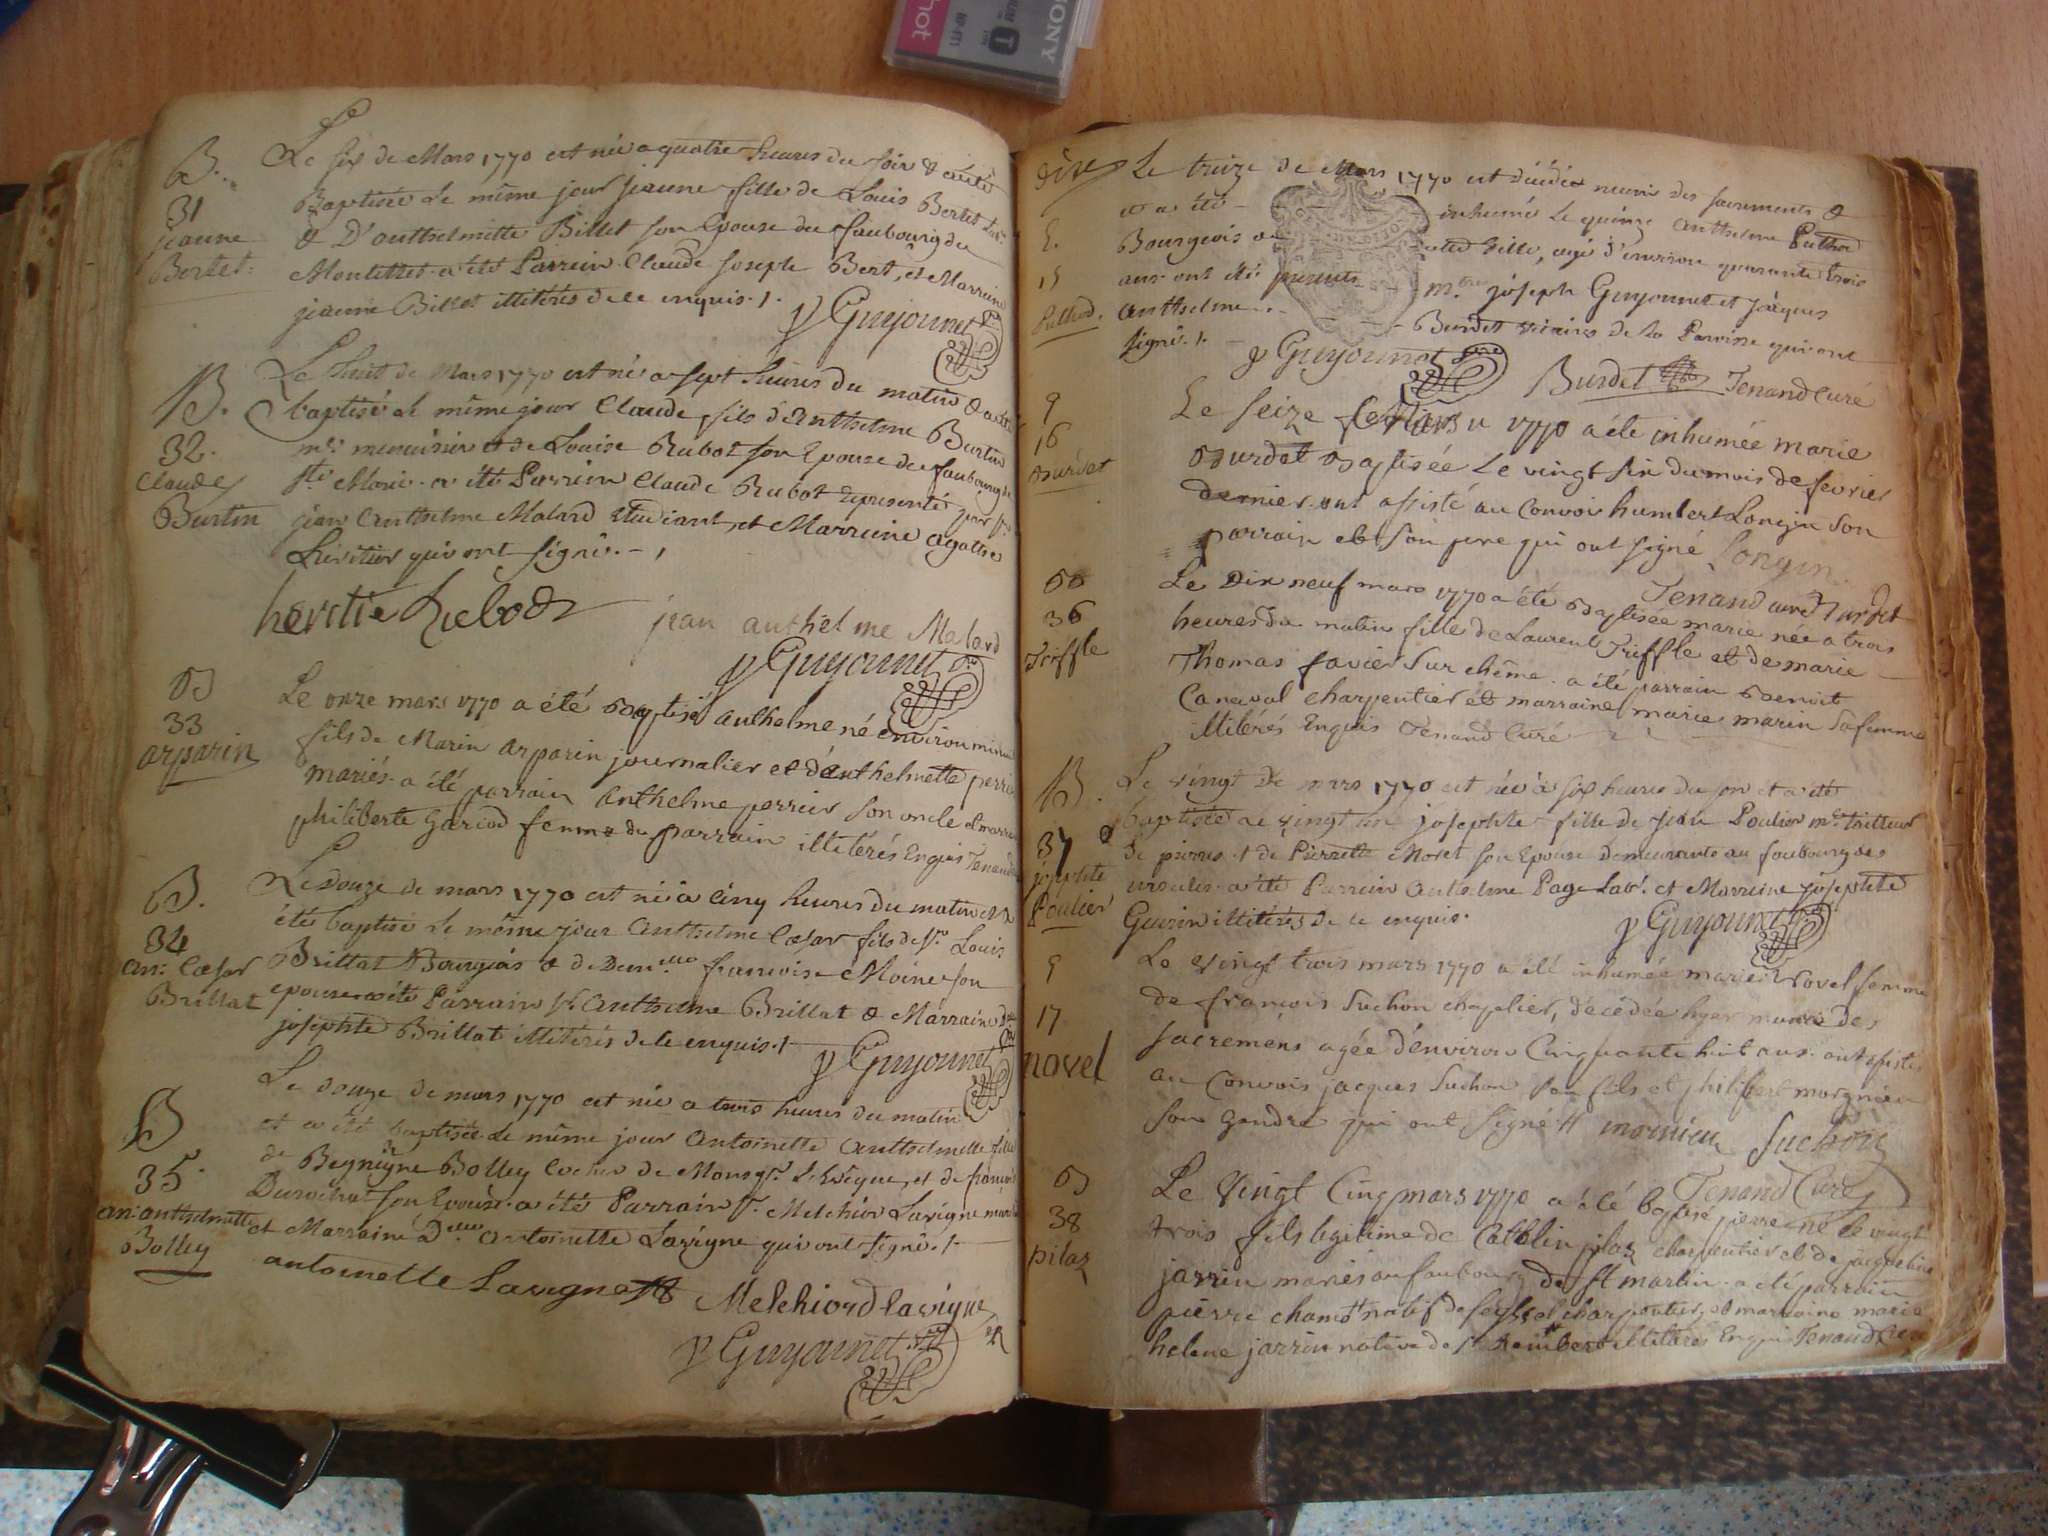 SONY
B.
31
jeanne
Bertet.
Le six de Mars 1770 est née a quatre heures du soir & a été
Baptisée Le même jour Jeanne fille de Louis Bertet Lab.
& D'anthelmette Billet son Epouse du faubourg du
a été Parrein Claude Joseph Bert, et Marreine
jeanne Billet illitérés de ce enquis./.
p Guyonnet
B.
32.
Claude
Burtin
Le huit de Mars 1770 est né a sept heures du matin & a été
baptisé Le même jour Claude, fils d'Anthelme Burtin
me. menuisier & de Louise Rubot son Epouse du faubourg de
Ste Marie. a été Parrein Claude Rubot représenté par Sr.
jean Anthelme Malard Etudiant, et Marreine agathe
qui ont signé. -
jean anthelme Malard
p Guyonnet
B
33
arparin
Le onze mars 1770 a été Baptisé anthelme né environ minuit
fils de Marin arparin journalier et d'anthelmette perrin
mariés. a été parrain anthelme perrin son oncle et marraine
philiberte gariod femme du parrain illitérés Enquis Tenand
B.
34
an: Cæsar
Brillat
Le Douze de mars 1770 est né à cinq heures du matin et a
été baptisé Le même jour Anthelme Cæsar fils de Sr. Louis
Brillat Bourgeois & de Demelle francoise Moine son
epouse a été Parrain Sr. Anthelme Brillat & Marraine Dlle
josephte Brillat illitérés de ce enquis./.
p Guyonnet
B
35.
an: anthelmette
Bolley
Le douze de mars 1770 est née a trois heures du matin
et a été baptisée Le même jour Antoinette Anthelmette fille
de Begnigne Bolley Cocher de Monsgr. L'Evêque, et de françoise
son Epouse. a été Parrain Sr. Melchior Lavigne
et Marraine Delle antoinette Lavigne qui ont signé./.
antoinette Lavigne Melchiord lavigne
p Guyonnet
E.
15
Puthod.
Le treize de Mars 1770 est décédé muni des sacrements &
et a été - inhumé Le quinze Anthelme Puthod
Bourgeois de cette Ville, agé d'environ quarante trois
ans ont été présents mres joseph Guyonnet et Jâques
Anthelme - Burdet vicaires de la Paroisse qui ont
signé./.
p Guyonnet Burdet Tenand Curé
9
16
Burdet
Le seize Mars 1770 a été inhumée marie
Burdet Baptisée Le vingt six du mois de fevrier
dernier. ont assisté au convoi humbert Longin son
parrain et son pere qui ont signé Longin.
Tenand curé Burdet
B
36
Triffle
Le Dix neuf mars 1770 a été Baptisée marie née a trois
heures du matin fille de Laurent Triffle et de marie
Thomas favier sur chême. a été parrain Benoit
Canaval charpentier et marraine marie marin sa femme
illitérés Enquis Tenand Curé
B.
37
josephte
Poulier
Le vingt de mars 1770 est née à six heures du soir et a été
baptisée Le vingt un josephte fille de jean Poulier me tailleur
de pierres & de Pierrette Moret son Epouse Demeurants au faubourg des
ursules. a été Parrein Anthelme Page Labr. et Marreine josephte
Guerin illitérés de ce enquis.
p Guyonnet
9
17
novel
Le vingt trois mars 1770 a été inhumée marie novel femme
de françois Suchon chapelier, decédée hyer munie des
sacremens agée d'environ Cinquante huit ans. ont assistés
au Convois jacques Suchon son fils et philibert morgnieu
son gendre qui ont signé Suchon
Tenand Curé
B
38
pilaz
Le Vingt Cinq mars 1770 a été baptisé pierre né le vingt
trois fils legitime de Cathlin pilaz charpentier et de jacqueline
jarrin mariés au faubourg de St martin. a été parrain
pierre natif de charpentier, et marraine marie
helene jarrin native de St Rambert illitérés Enquis Tenand Curé